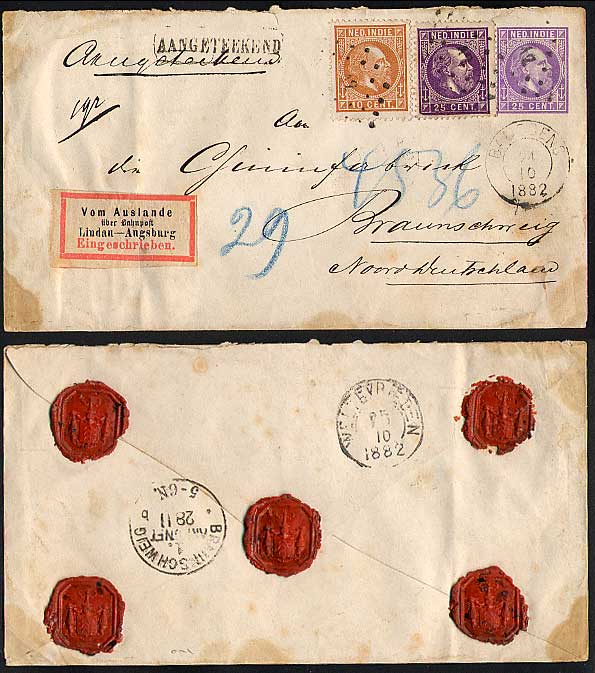 AANGETEEKEND
Aangeteekend
NED. INDIE
10 CENT
NED. INDIE
25 CENT
NED. INDIE
25 CENT
An
die Chininfabrick
Braunschweig
Noord Deutschland
24
10
1882
Vom Auslande
über Bahnpost
Lindau—Augsburg
Eingeschrieben.
29
WELTEVREDEN
25
10
1882
BRAUNSCHWEIG
28 11
5-6N.